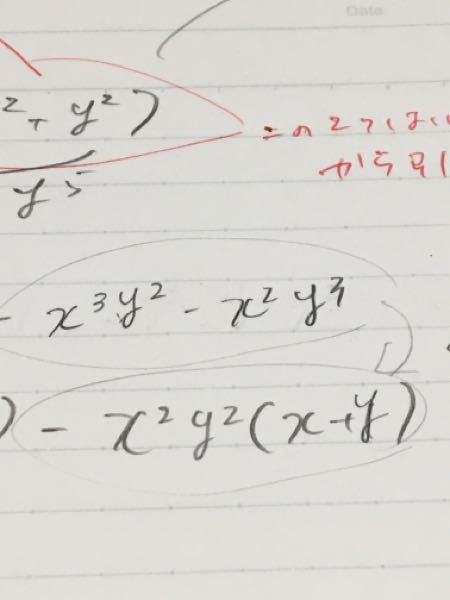 Date
² + y²)
y⁵
この2つは
から
- x³y² - x²y³
) - x²y²(x+y)